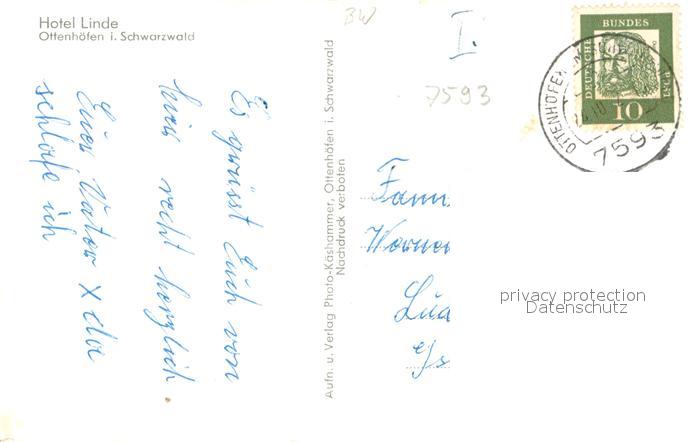 Hotel Linde
Ottenhöfen i. Schwarzwald
Es grüsst Euch von
hier recht herzlich
Euer Vater X da
schlafe ich
Aufn. u. Verlag Photo-Käshammer, Ottenhöfen i. Schwarzwald
Nachdruck verboten
BW
I.
7593
DEUTSCHE BUNDESPOST
10
OTTENHÖFEN
7593
Fam
Werner
privacy protection
Datenschutz